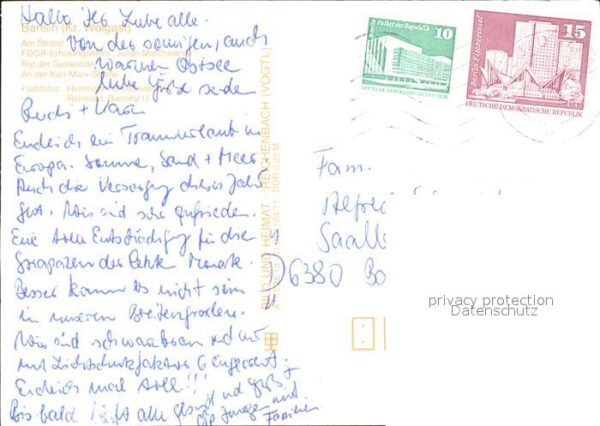 Hallo Ihr Lieben alle.
Von der sonnigen, auch
warmen Ostsee
liebe Grüße senden
Buchs + Karin
Endlich ein Traumurlaub in
Europa. Sonne, Sand + Meer
Auch die Versorgung dieses Jahr
gut. Wir sind sehr zufrieden.
Eine tolle Entschädigung für die
Strapazen der letzten Monate.
Besser kann es nicht sein
in unseren Breitengraden.
Wir sind schwarzbraun und nur
mit Lichtschutzfaktor 6 eingecremt.
Endlich mal toll!!!
Bis bald bleibt alle gesund und grüßt
die Jungen mit
Familien
Bansin (Kr. Wolgast)
Am Strand
FDGB-Erholungsheim
Rat der Gemeinde
An der Karl-Marx-Straße
Farbfotos:
Bansin (1)
BILD UND HEIMAT REICHENBACH (VOGTL)
Berlin, Palast der Republik
10
DEUTSCHE DEMOKRATISCHE REPUBLIK
Berlin, Fischerinsel
15
DEUTSCHE DEMOKRATISCHE REPUBLIK
Fam.
Alfre
Saalb
6380 Bo
privacy protection
Datenschutz